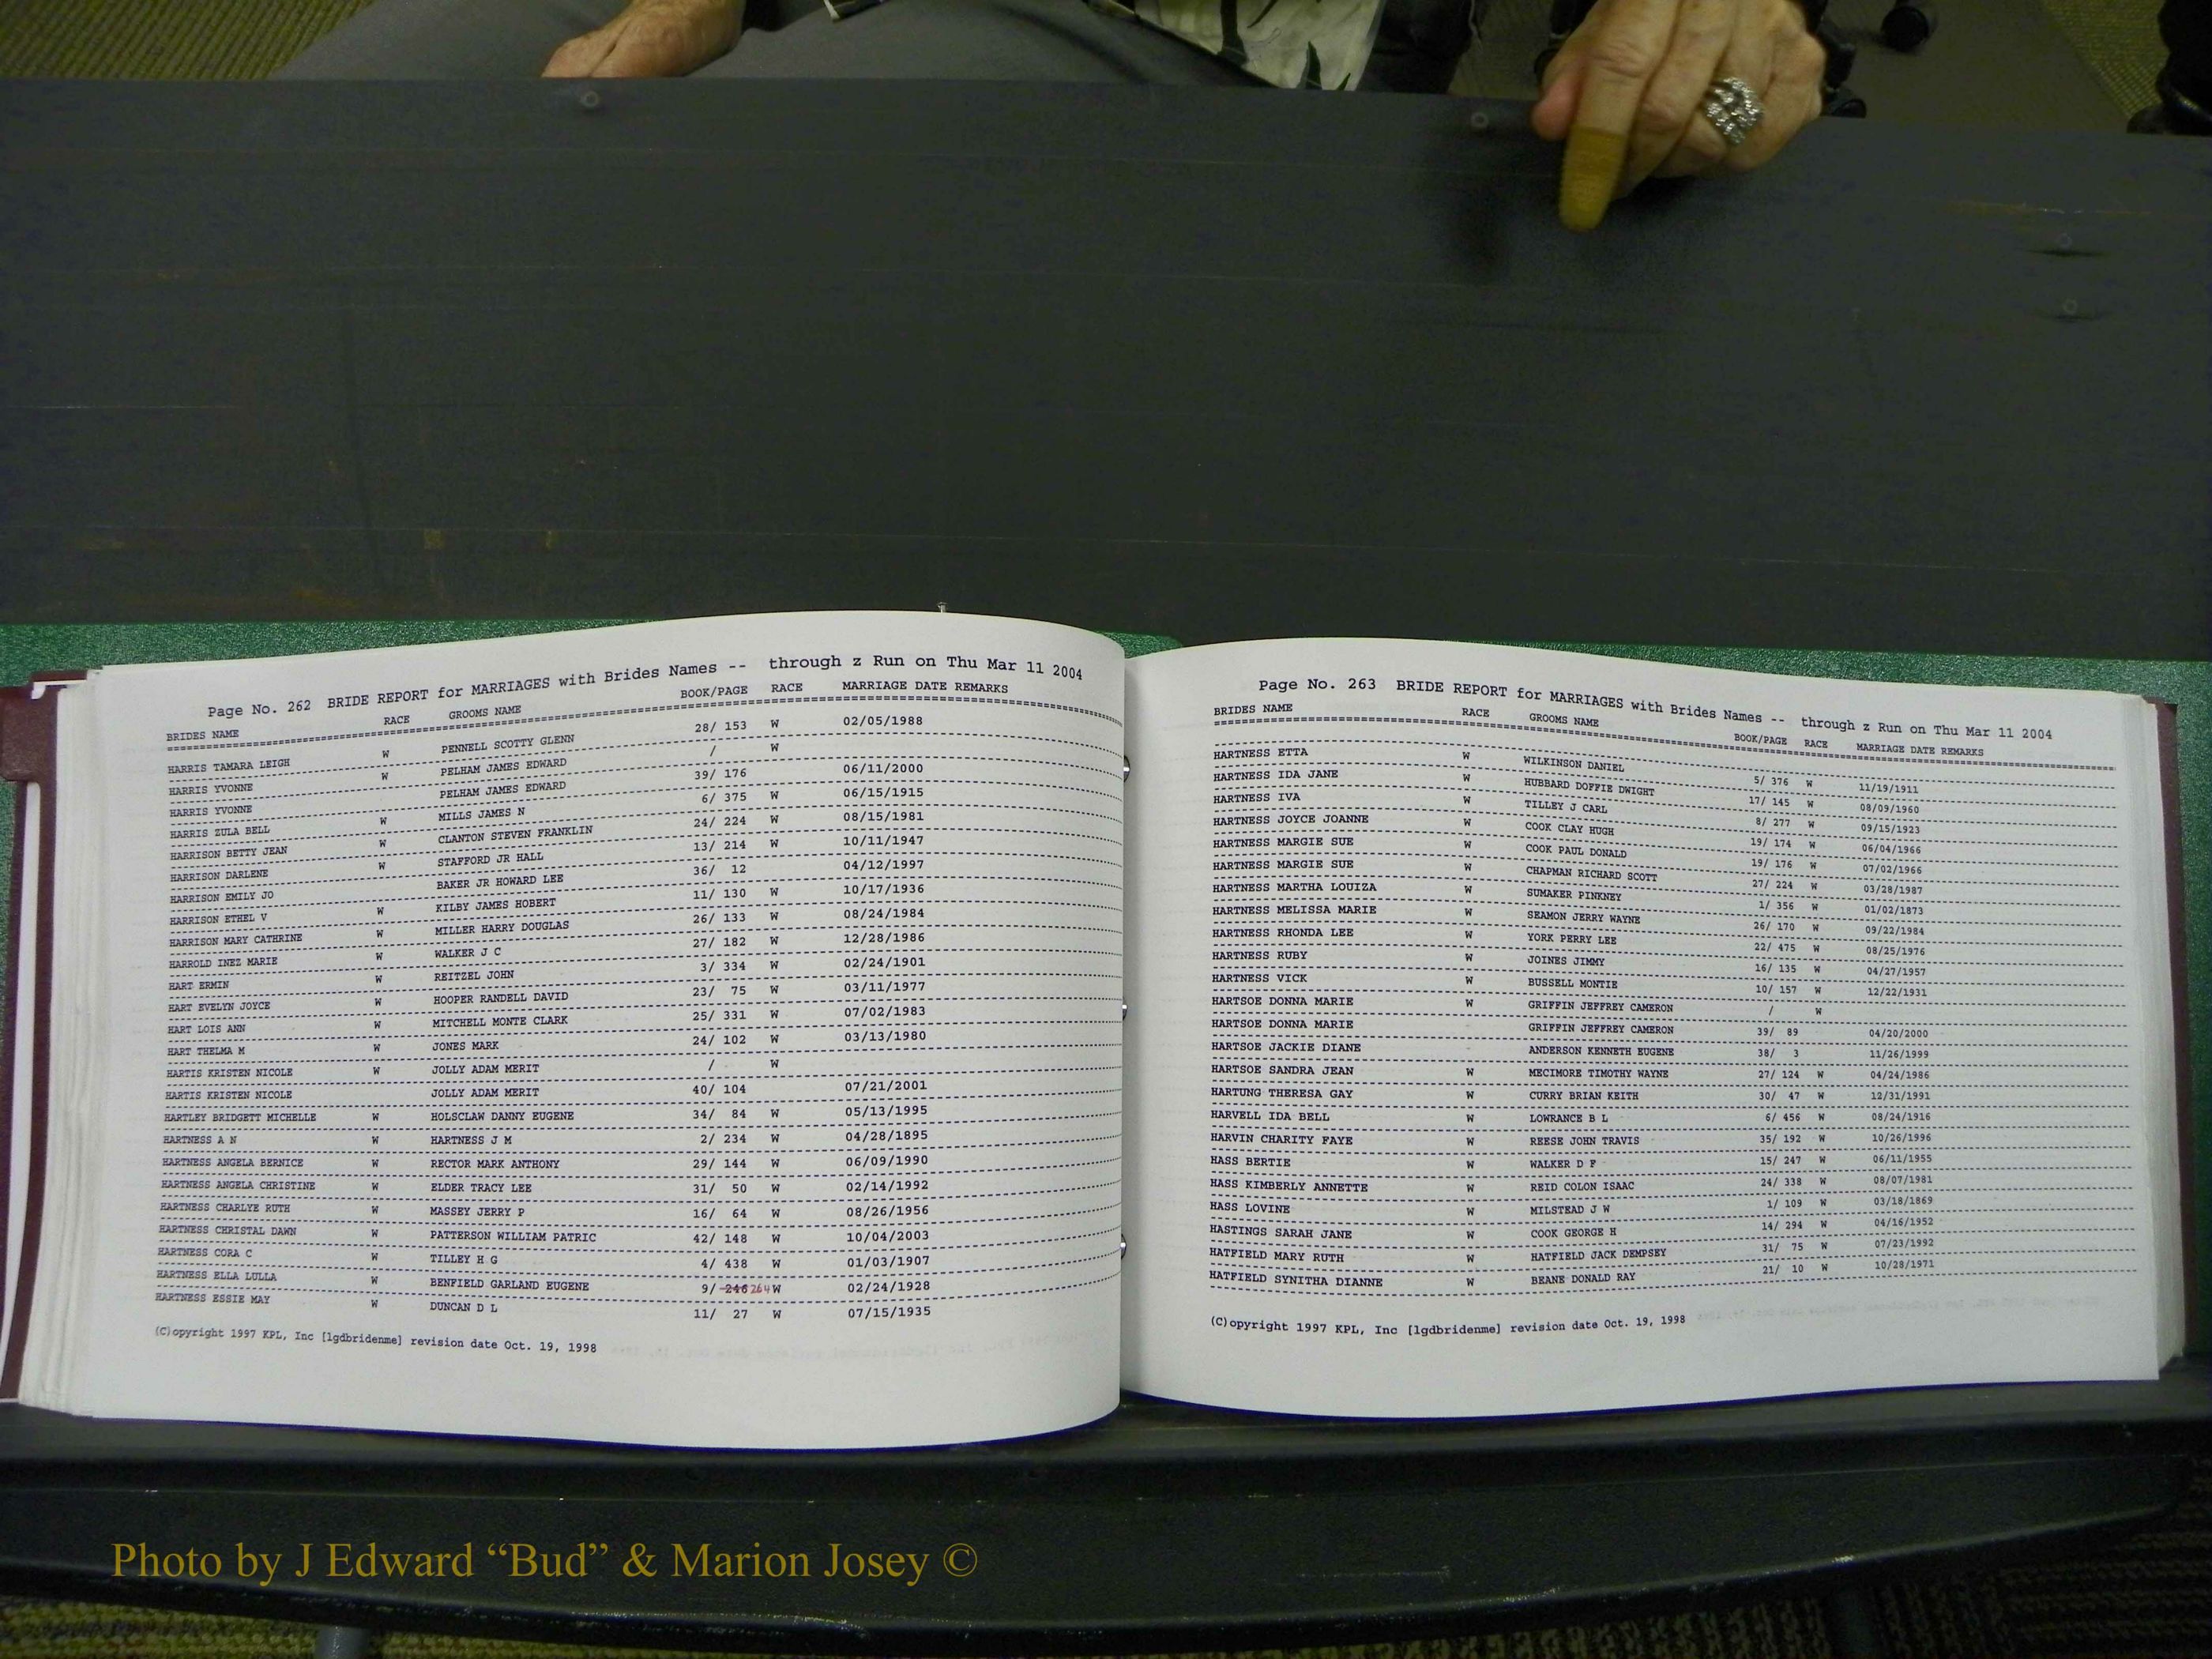 Page No. 262 BRIDE REPORT for MARRIAGES with Brides Names -- through z Run on Thu Mar 11 2004
BRIDES NAME RACE GROOMS NAME BOOK/PAGE RACE MARRIAGE DATE REMARKS
HARRIS TAMARA LEIGH W PENNELL SCOTTY GLENN 28/ 153 W 02/05/1988
HARRIS YVONNE W PELHAM JAMES EDWARD / W
HARRIS YVONNE PELHAM JAMES EDWARD 39/ 176 06/11/2000
HARRIS ZULA BELL W MILLS JAMES N 6/ 375 W 06/15/1915
HARRISON BETTY JEAN W CLANTON STEVEN FRANKLIN 24/ 224 W 08/15/1981
HARRISON DARLENE W STAFFORD JR HALL 13/ 214 W 10/11/1947
HARRISON EMILY JO BAKER JR HOWARD LEE 36/ 12 04/12/1997
HARRISON ETHEL V W KILBY JAMES HOBERT 11/ 130 W 10/17/1936
HARRISON MARY CATHRINE W MILLER HARRY DOUGLAS 26/ 133 W 08/24/1984
HARROLD INEZ MARIE W WALKER J C 27/ 182 W 12/28/1986
HART ERMIN W REITZEL JOHN 3/ 334 W 02/24/1901
HART EVELYN JOYCE W HOOPER RANDELL DAVID 23/ 75 W 03/11/1977
HART LOIS ANN W MITCHELL MONTE CLARK 25/ 331 W 07/02/1983
HART THELMA M W JONES MARK 24/ 102 W 03/13/1980
HARTIS KRISTEN NICOLE W JOLLY ADAM MERIT / W
HARTIS KRISTEN NICOLE JOLLY ADAM MERIT 40/ 104 07/21/2001
HARTLEY BRIDGETT MICHELLE W HOLSCLAW DANNY EUGENE 34/ 84 W 05/13/1995
HARTNESS A N W HARTNESS J M 2/ 234 W 04/28/1895
HARTNESS ANGELA BERNICE W RECTOR MARK ANTHONY 29/ 144 W 06/09/1990
HARTNESS ANGELA CHRISTINE W ELDER TRACY LEE 31/ 50 W 02/14/1992
HARTNESS CHARLYE RUTH W MASSEY JERRY P 16/ 64 W 08/26/1956
HARTNESS CHRISTAL DAWN W PATTERSON WILLIAM PATRIC 42/ 148 W 10/04/2003
HARTNESS CORA C W TILLEY H G 4/ 438 W 01/03/1907
HARTNESS ELLA LULLA W BENFIELD GARLAND EUGENE 9/ 246 264 W 02/24/1928
HARTNESS ESSIE MAY W DUNCAN D L 11/ 27 W 07/15/1935
(C)opyright 1997 KPL, Inc [lgdbridenme] revision date Oct. 19, 1998
Page No. 263 BRIDE REPORT for MARRIAGES with Brides Names -- through z Run on Thu Mar 11 2004
BRIDES NAME RACE GROOMS NAME BOOK/PAGE RACE MARRIAGE DATE REMARKS
HARTNESS ETTA W WILKINSON DANIEL 5/ 376 W 11/19/1911
HARTNESS IDA JANE W HUBBARD DOFFIE DWIGHT 17/ 145 W 08/09/1960
HARTNESS IVA W TILLEY J CARL 8/ 277 W 09/15/1923
HARTNESS JOYCE JOANNE W COOK CLAY HUGH 19/ 174 W 06/04/1966
HARTNESS MARGIE SUE W COOK PAUL DONALD 19/ 176 W 07/02/1966
HARTNESS MARGIE SUE W CHAPMAN RICHARD SCOTT 27/ 224 W 03/28/1987
HARTNESS MARTHA LOUIZA W SUMAKER PINKNEY 1/ 356 W 01/02/1873
HARTNESS MELISSA MARIE W SEAMON JERRY WAYNE 26/ 170 W 09/22/1984
HARTNESS RHONDA LEE W YORK PERRY LEE 22/ 475 W 08/25/1976
HARTNESS RUBY W JOINES JIMMY 16/ 135 W 04/27/1957
HARTNESS VICK W BUSSELL MONTIE 10/ 157 W 12/22/1931
HARTSOE DONNA MARIE W GRIFFIN JEFFREY CAMERON / W
HARTSOE DONNA MARIE GRIFFIN JEFFREY CAMERON 39/ 89 04/20/2000
HARTSOE JACKIE DIANE ANDERSON KENNETH EUGENE 38/ 3 11/26/1999
HARTSOE SANDRA JEAN W MECIMORE TIMOTHY WAYNE 27/ 124 W 04/24/1986
HARTUNG THERESA GAY W CURRY BRIAN KEITH 30/ 47 W 12/31/1991
HARVELL IDA BELL W LOWRANCE B L 6/ 456 W 08/24/1916
HARVIN CHARITY FAYE W REESE JOHN TRAVIS 35/ 192 W 10/26/1996
HASS BERTIE W WALKER D F 15/ 247 W 06/11/1955
HASS KIMBERLY ANNETTE W REID COLON ISAAC 24/ 338 W 08/07/1981
HASS LOVINE W MILSTEAD J W 1/ 109 W 03/18/1869
HASTINGS SARAH JANE W COOK GEORGE H 14/ 294 W 04/16/1952
HATFIELD MARY RUTH W HATFIELD JACK DEMPSEY 31/ 75 W 07/23/1992
HATFIELD SYNITHA DIANNE W BEANE DONALD RAY 21/ 10 W 10/28/1971
(C)opyright 1997 KPL, Inc [lgdbridenme] revision date Oct. 19, 1998
Photo by J Edward “Bud” & Marion Josey ©